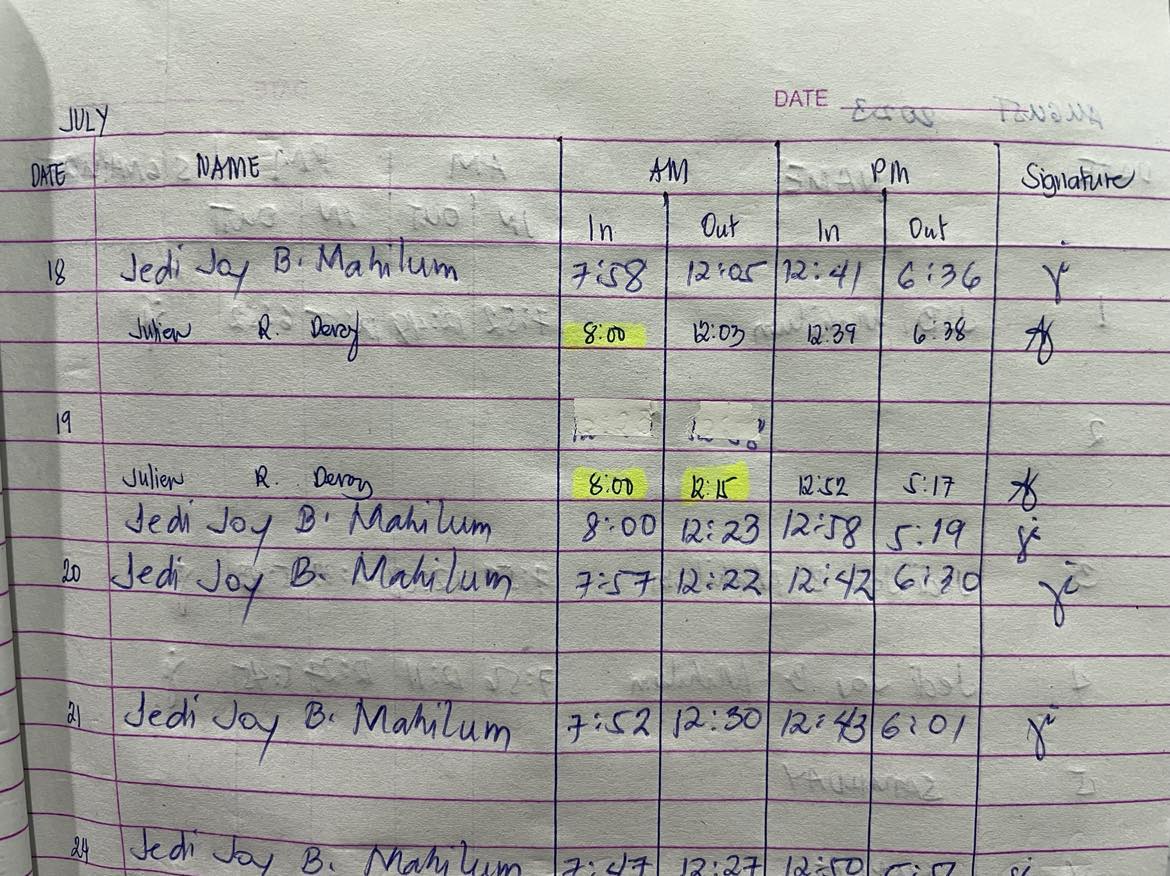 DATE
JULY
DATE NAME AM PM Signature
In Out In Out
18 Jedi Joy B. Mahilum 7:58 12:05 12:41 6:36
Julien R. Deroy 8:00 12:03 12:39 6:38
19
Julien R. Deroy 8:00 12:15 12:52 5:17
Jedi Joy B. Mahilum 8:00 12:23 12:58 5:19
20 Jedi Joy B. Mahilum 7:57 12:22 12:42 6:30
21 Jedi Joy B. Mahilum 7:52 12:30 12:43 6:01
24 Jedi Joy B. Mahilum 7:47 12:27 12:50